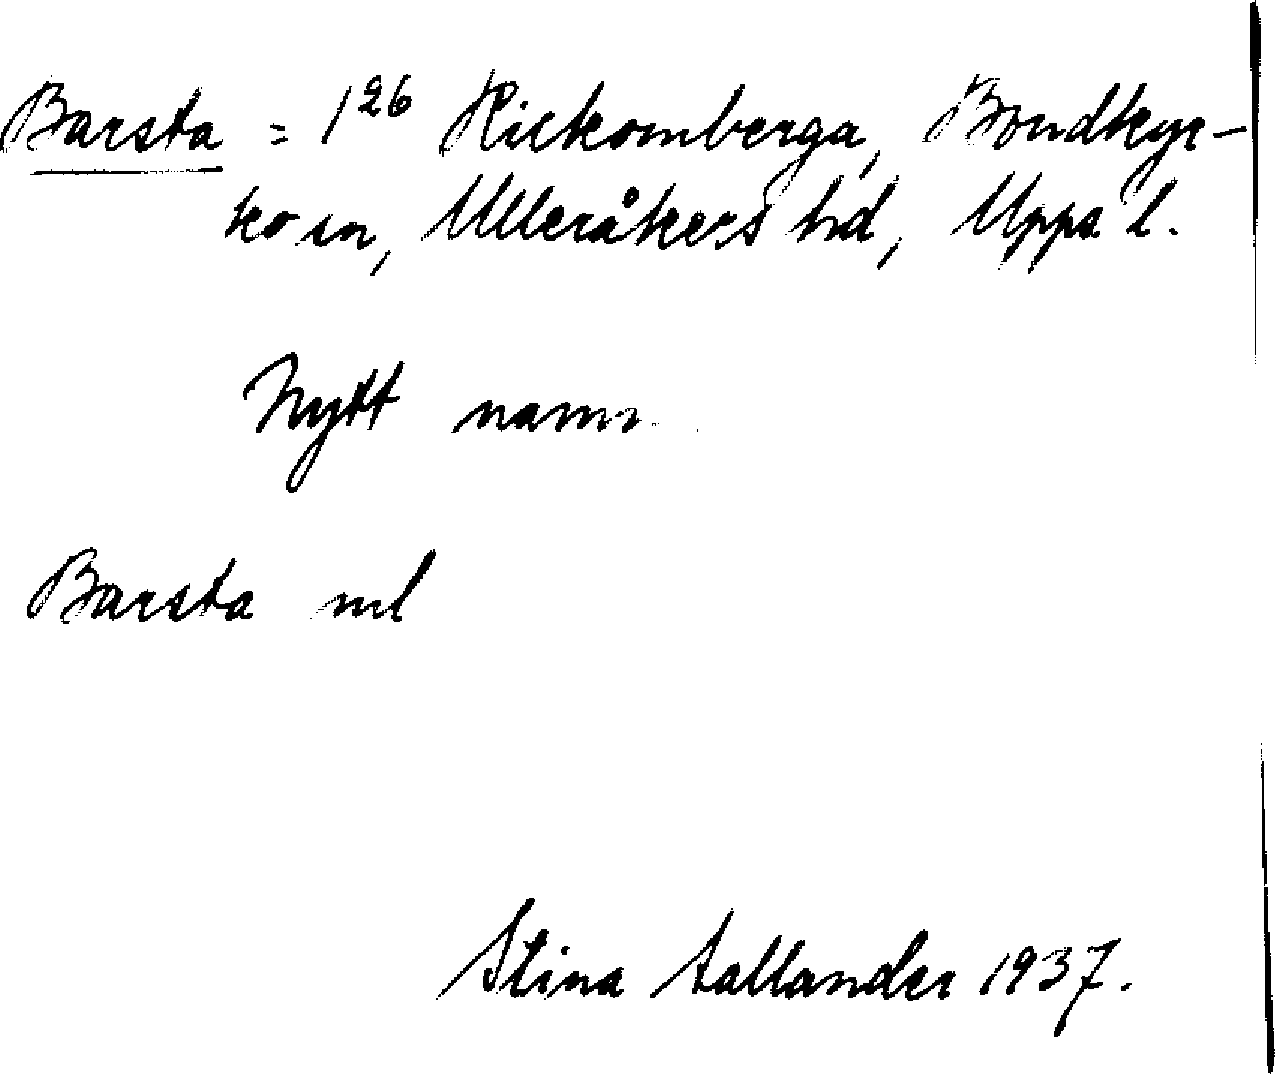 Barsta = 1²⁶ Hickomberga, Bondkyr-
ko sn, Ulleråkers hd, Uppsa l.
Nytt namn.
Barsta ml
Stina Sallander 1937.